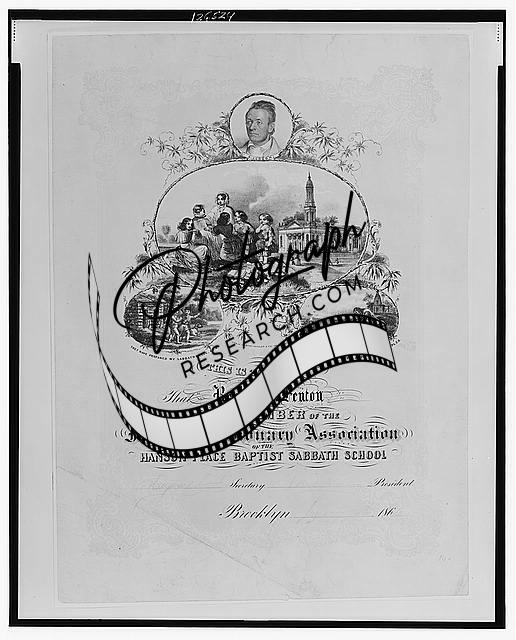 126527
Photograph
RESEARCH.COM
THIS IS
That P enton
BER OF THE
onary Association
OF THE
HANSON PLACE BAPTIST SABBATH SCHOOL
Secretary President
Brooklyn 186